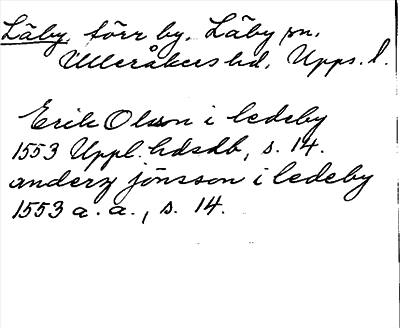 Läby, förr by, Läby sn.
Ulleråkers hd, Upps. l.
Erik Olsson i ledeby
1553 Uppl. hdsdb, s. 14.
anderz jönsson i ledeby
1553 a. a., s. 14.